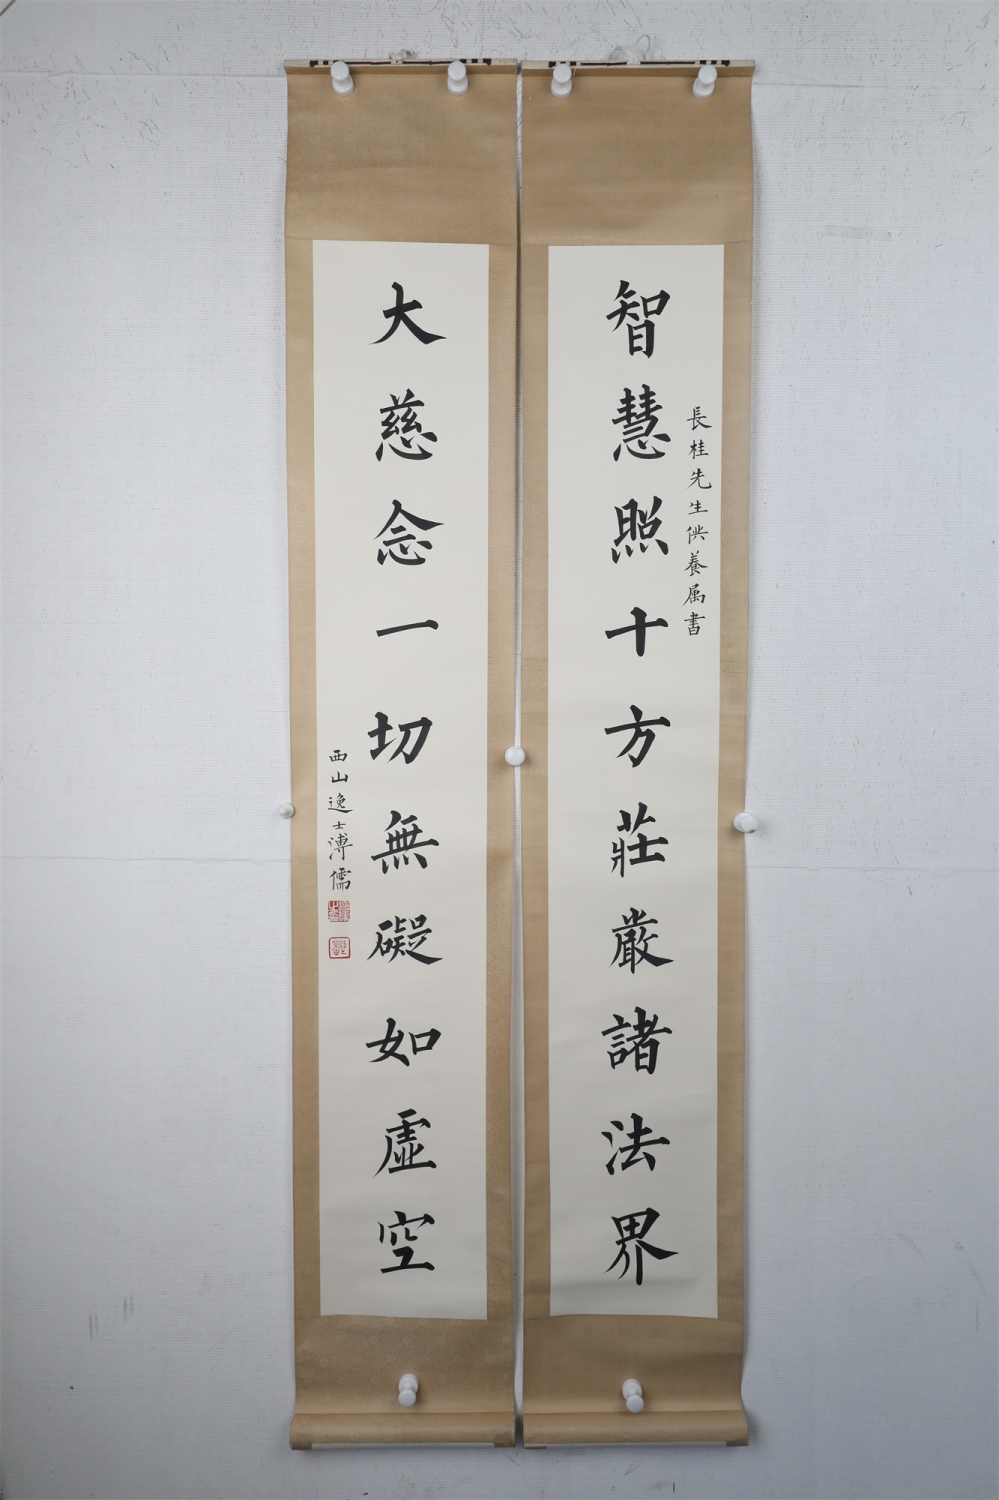 長桂先生供養属書
智慧照十方莊嚴諸法界
大慈念一切無礙如虛空
西山逸士溥儒